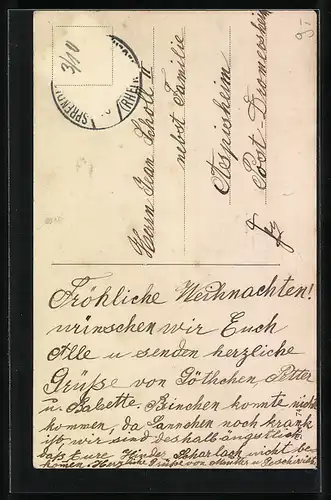 3/10
SPRENDL
(RHEIN
Herrn Jean Scholl II
nebst Familie
Aspisheim
Post Dromersheim
Fröhliche Weihnachten!
wünschen wir Euch
Alle u senden herzliche
Grüße von Göthchen, Petter
u. Babette. Binchen konnte nicht
kommen, da Sannchen noch krank
ist, wir sind deshalb ängstlich
daß Eure Kinder Scharlach nicht be-
kommen. Herzliche Grüße von u.